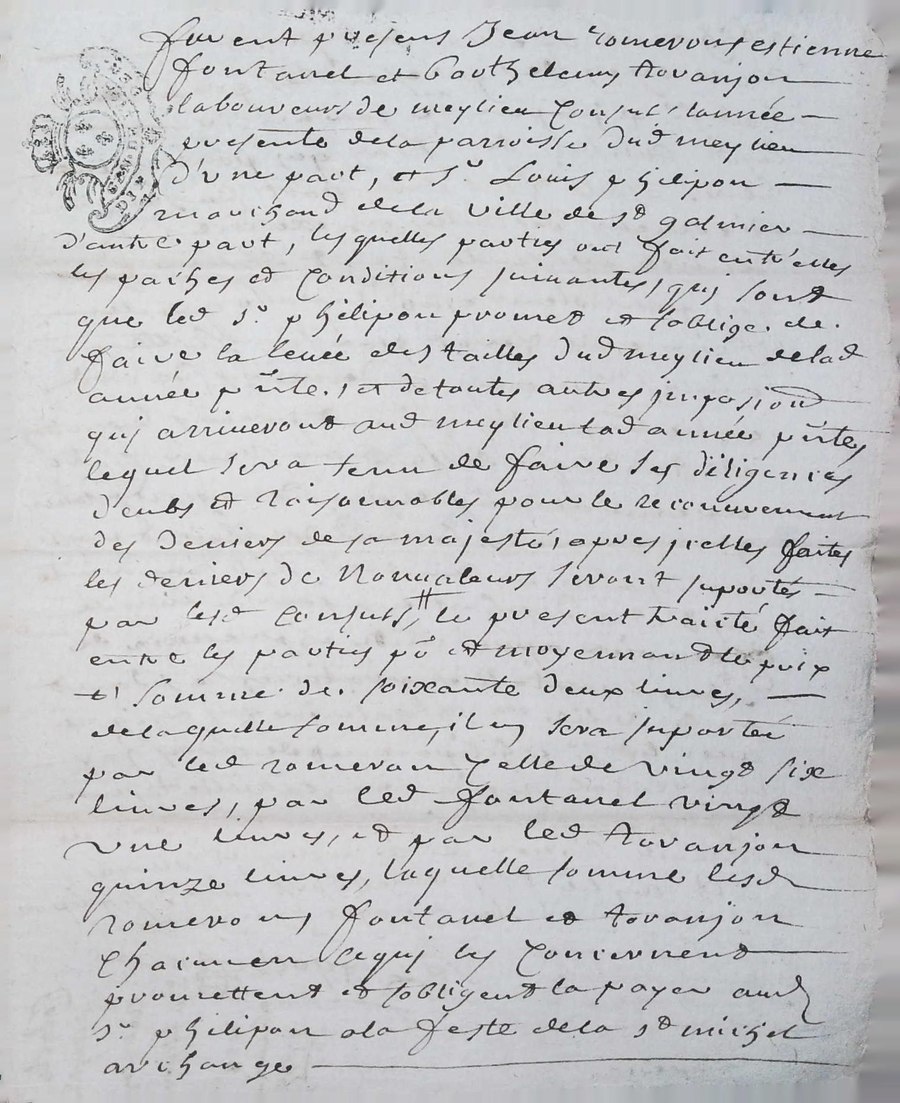 furent presens Jean romerony estienne
fontanel et Barthelemy tovanjon
laboureurs de meylieu Consuls lannée
presente de la parroisse dud meylieu
d'une part, et sr. Louis philipon
marchand de la ville de st galmier
d'autre part, lesquelles parties ont fait entr'elles
les paches et Conditions suivantes, qui sont
que led sr. philipon promet et soblige de
faire la leuée des tailles dud meylieu de lad
année pñte, et de toutes autres imposiond
qui arriueront aud meylieu lad année pñtes
lequel sera tenu de faire ses diligences
deubs et raisonnables pour le recouurement
des deniers de sa majesté, apres jcelles faites
les deniers de Nonualeurs seront suportés
par lesd Consuls, # le present traicté fait
entre les parties po et moyennant le prix
et somme de soixante deux liures,
de laquelle somme, il en sera suportée
par led romeron Celle de vingt six
liures, par led fontanel vingt
vne liures, et par led tovanjon
quinze liures, laquelle somme lesd
romerony fontanel et tovanjon
Chacun en ce qui les Concernent
promettent et sobligent la payer aud
sr. philipon a la feste de la st michel
archange